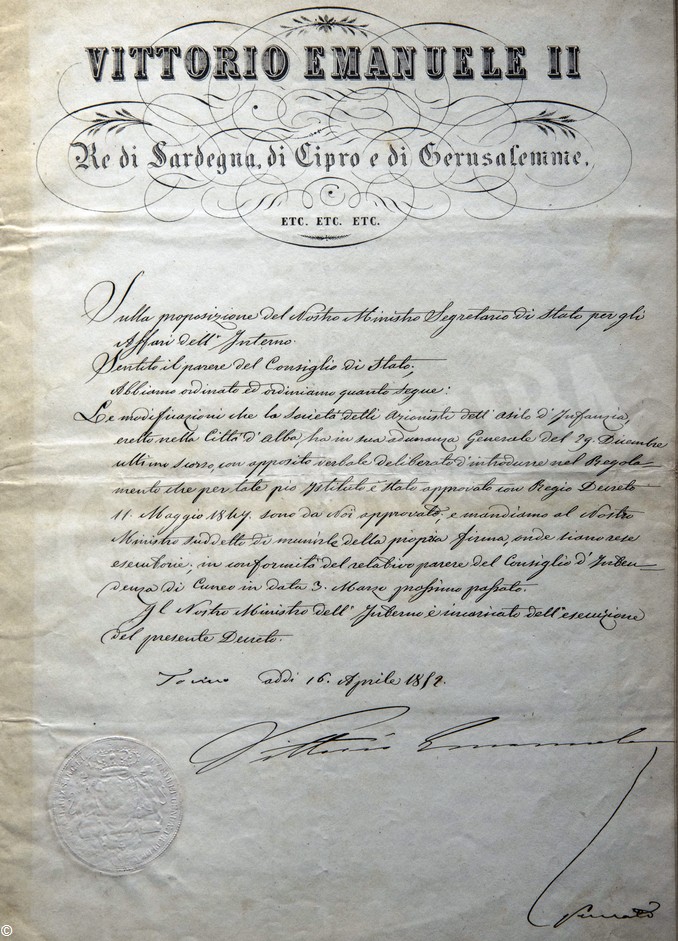 VITTORIO EMANUELE II
Re di Sardegna, di Cipro e di Gerusalemme,
ETC. ETC. ETC.
Sulla proposizione del Nostro Ministro Segretario di Stato per gli
Affari dell' Interno.
Sentito il parere del Consiglio di Stato;
Abbiamo ordinato ed ordiniamo quanto segue:
Le modificazioni che la Società delli Azionisti dell' Asilo d' Infanzia,
eretto nella Città d' Alba, ha in sua adunanza Generale del 29. Dicembre
ultimo scorso con apposito verbale deliberato d' introdurre nel Regola-
mento che per tale pio Istituto è stato approvato con Regio Decreto
11. Maggio 1847, sono da Noi approvate, e mandiamo al Nostro
Ministro suddetto di munirle della propria firma, onde siano rese
esecutorie, in conformità del relativo parere del Consiglio d' Inten-
denza di Cuneo in data 3. Marzo prossimo passato.
Il Nostro Ministro dell' Interno è incaricato dell' esecuzione
del presente Decreto.
Torino addì 16. Aprile 1852.
Vittorio Emanuele
©